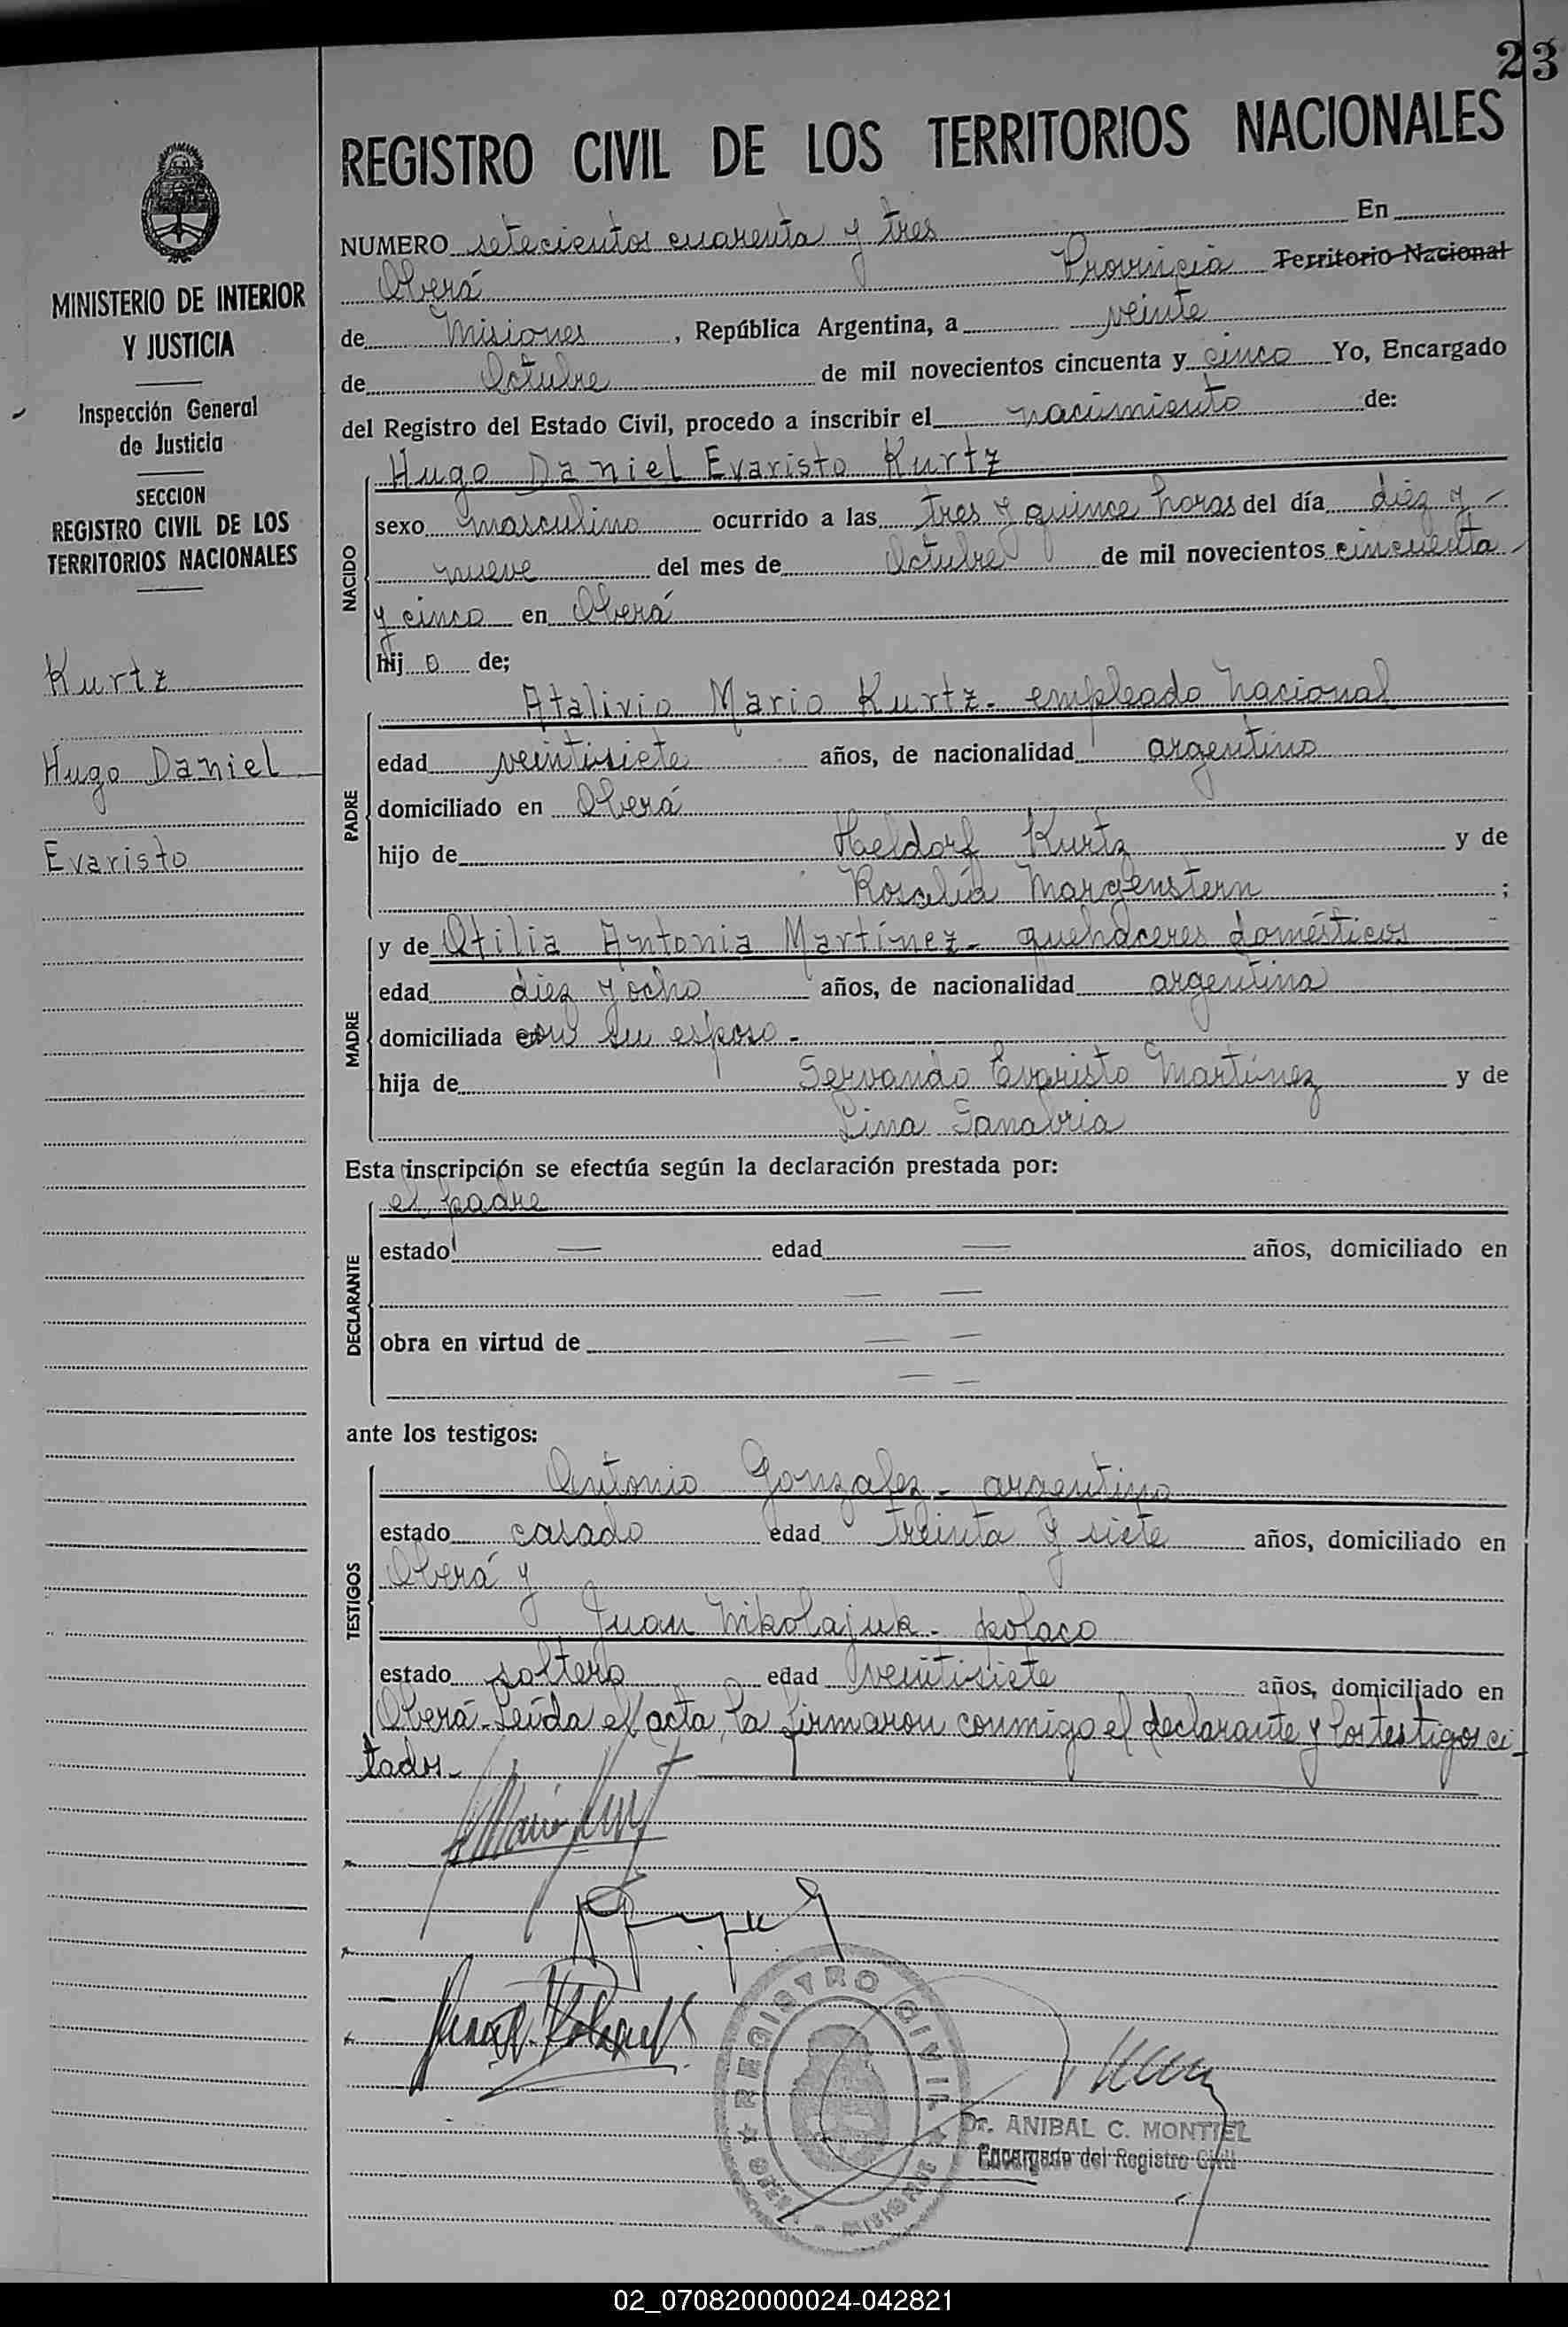 23
REGISTRO CIVIL DE LOS TERRITORIOS NACIONALES
MINISTERIO DE INTERIOR
Y JUSTICIA
Inspección General
de Justicia
SECCION
REGISTRO CIVIL DE LOS
TERRITORIOS NACIONALES
Kurtz
Hugo Daniel
Evaristo
NUMERO setecientos cuarenta y tres En
Oberá Provincia Territorio Nacional
de Misiones, República Argentina, a veinte
de Octubre de mil novecientos cincuenta y cinco Yo, Encargado
del Registro del Estado Civil, procedo a inscribir el nacimiento de:
NACIDO
Hugo Daniel Evaristo Kurtz
sexo masculino ocurrido a las tres y quince horas del día diez y -
nueve del mes de Octubre de mil novecientos cincuenta -
y cinco en Oberá
hijo de;
PADRE
Atalivio Mario Kurtz - empleado nacional
edad veintisiete años, de nacionalidad argentino
domiciliado en Oberá
hijo de Heldorf Kurtz y de
Rosalía Morgenstern ;
MADRE
y de Otilia Antonia Martínez - quehaceres domésticos
edad diez y ocho años, de nacionalidad argentina
domiciliada con su esposo -
hija de Servando Evaristo Martínez y de
Lina Sanabria
Esta inscripción se efectúa según la declaración prestada por:
DECLARANTE
el padre
estado — edad — años, domiciliado en
— —
obra en virtud de — —
— —
ante los testigos:
TESTIGOS
Antonio Gonzalez - argentino
estado casado edad treinta y siete años, domiciliado en
Oberá y
Juan Nikolajuk - polaco
estado soltero edad veintisiete años, domiciliado en
Oberá - Leída el acta, la firmaron conmigo el declarante y los testigos ci-
tados -
REGISTRO CIVIL
OBERA - MISIONES
Dr. ANIBAL C. MONTIEL
Encargado del Registro Civil
02_070820000024-042821